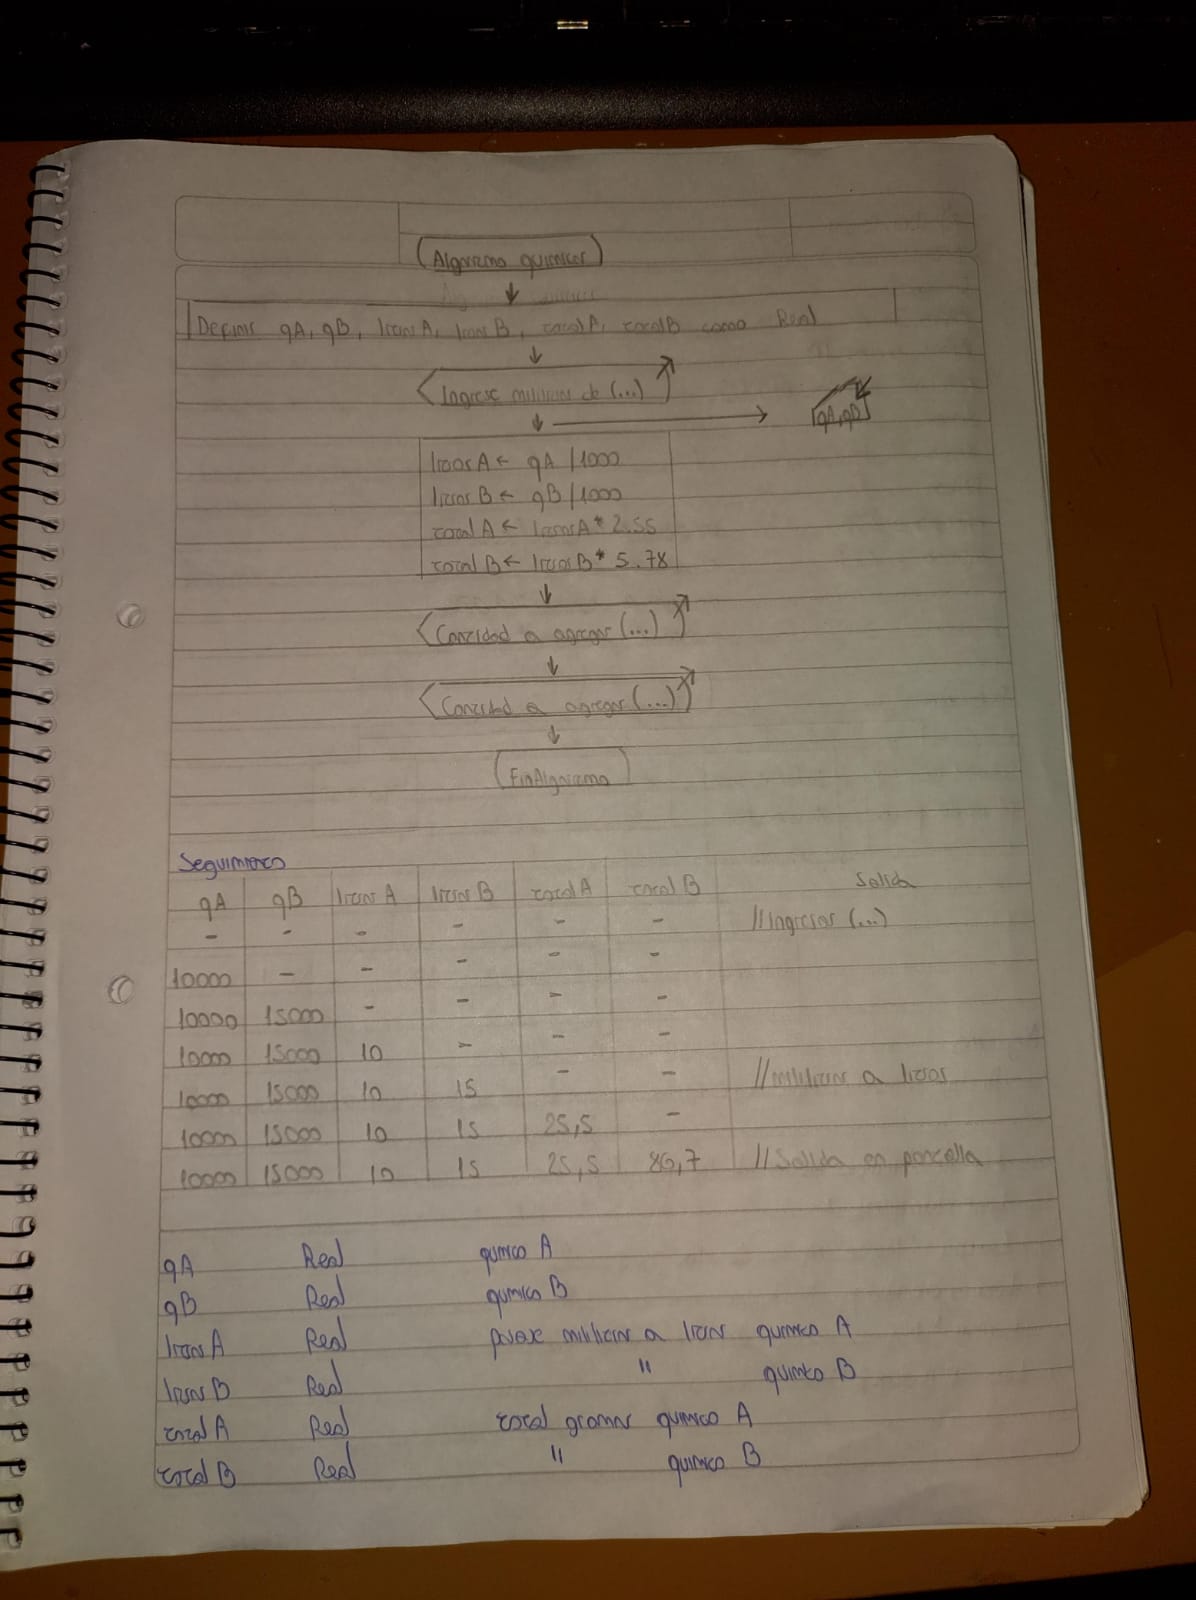 Algoritmo quimicos
Definir qA, qB, litrosA, litrosB, totalA, totalB como Real
Ingrese mililitros de (...)
qA, qB
litrosA ← qA /1000
litrosB ← qB/1000
totalA ← litrosA * 2.55
totalB ← litrosB * 5.78
Cantidad a agregar (...)
Cantidad a agregar (...)
FinAlgoritmo
Seguimiento
qA qB litrosA litrosB totalA totalB Salida
- - - - - - //Ingresar (...)
10000 - - - - -
10000 15000 - - - -
10000 15000 10 - - -
10000 15000 10 15 - - //mililitros a litros
10000 15000 10 15 25,5 -
10000 15000 10 15 25,5 86,7 //Salida en pantalla
qA Real quimico A
qB Real quimico B
litrosA Real mililitros a litros quimico A
litrosB Real " quimico B
totalA Real total gramos quimico A
totalB Real " quimico B